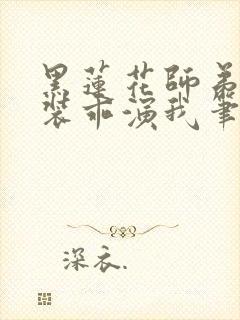 黑莲花師弟
裝乖演我筆
深衣.